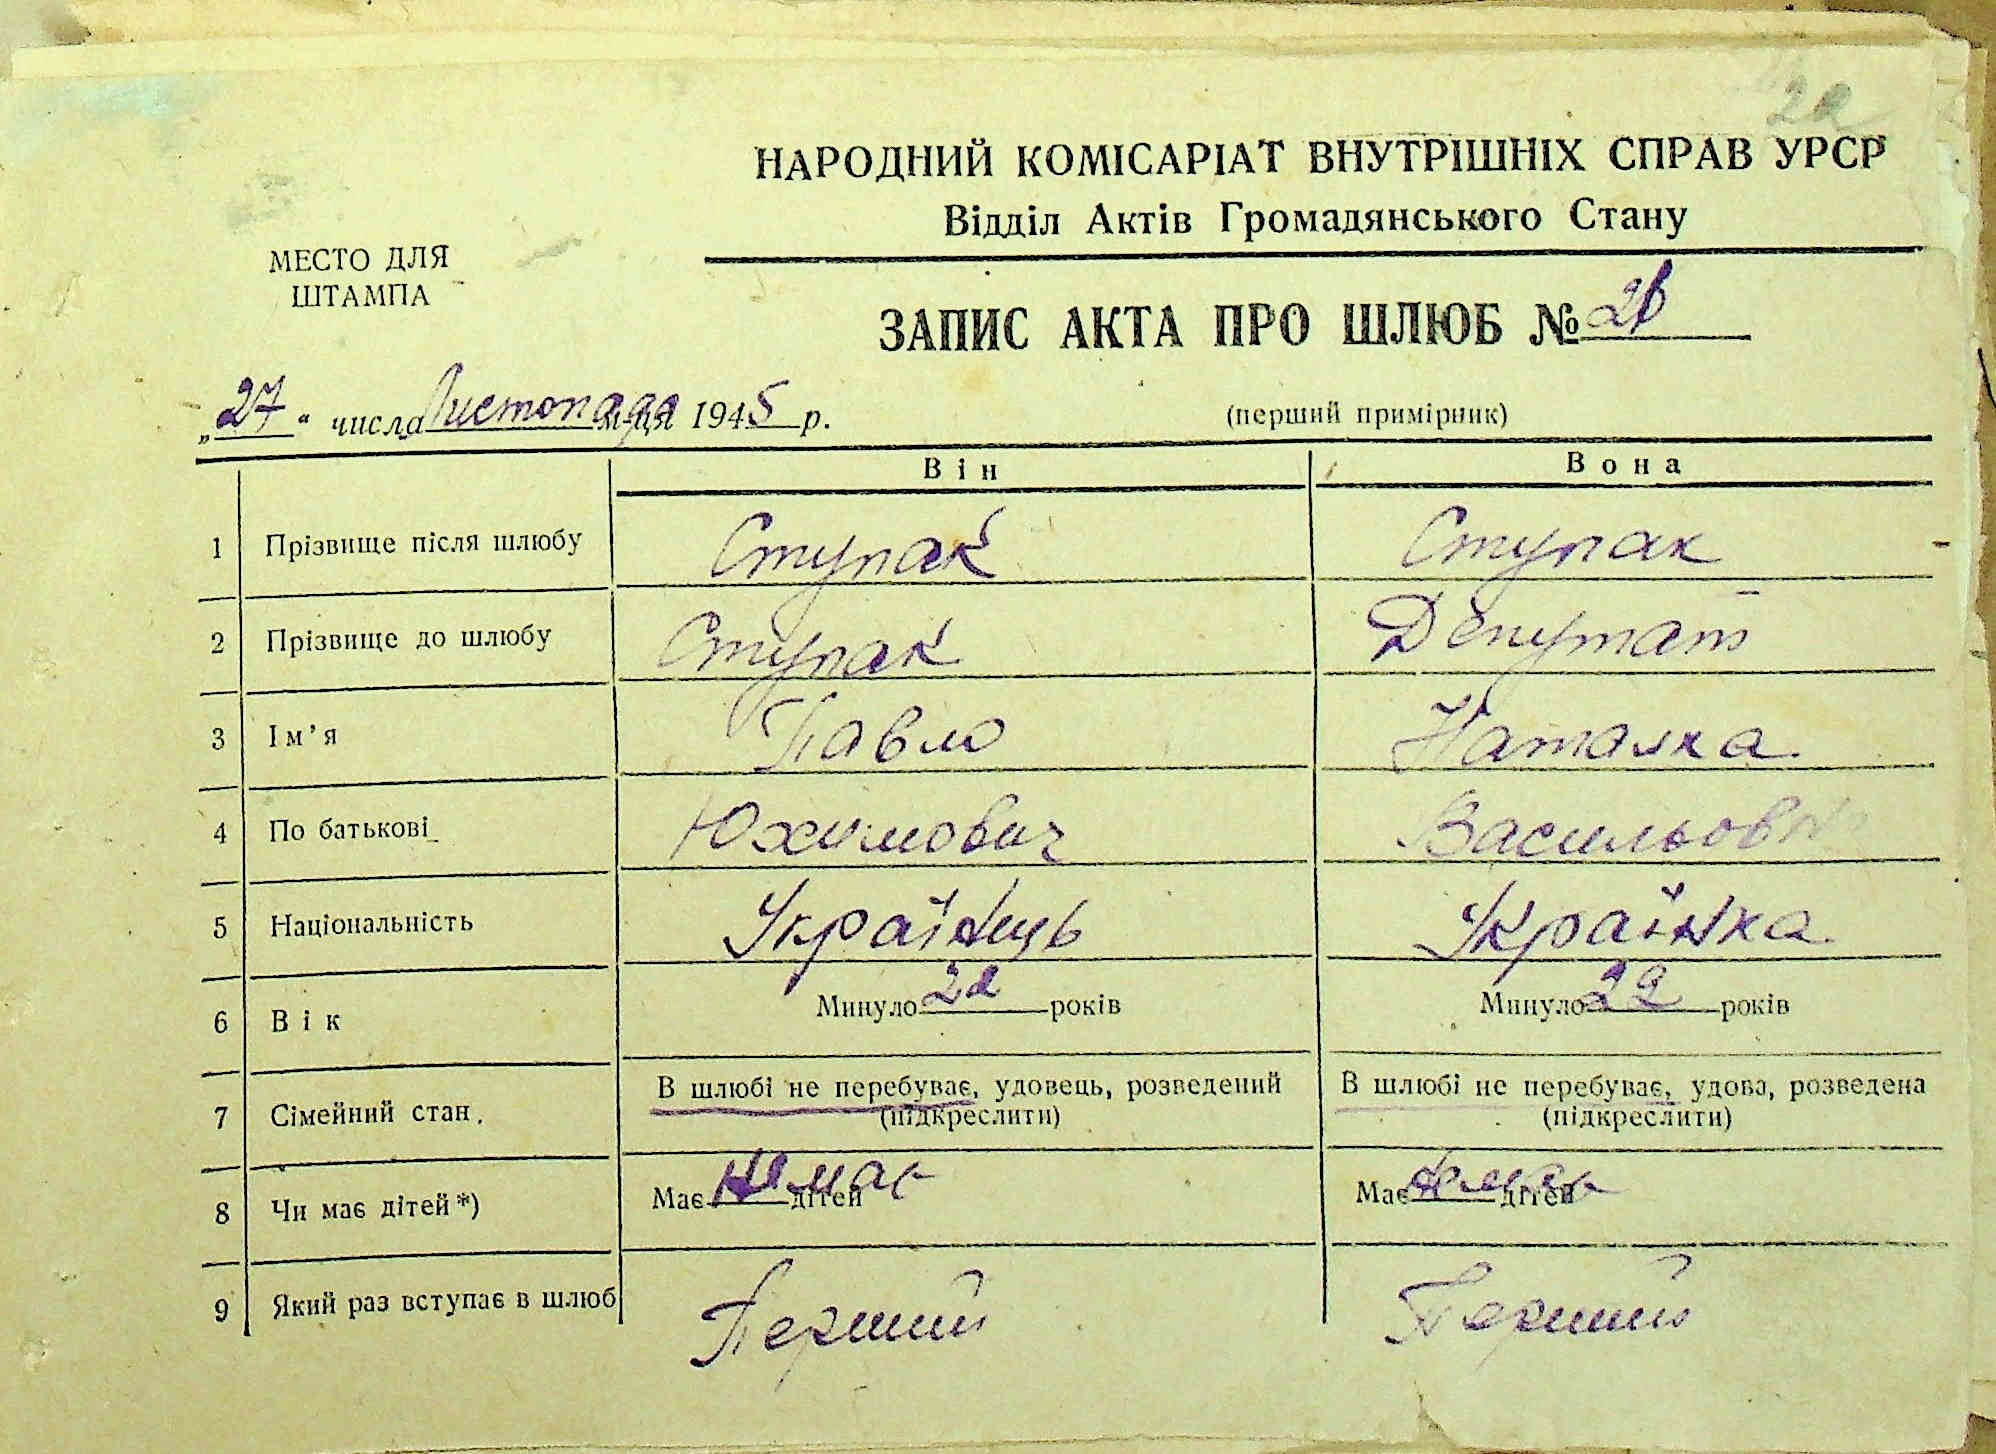 22
НАРОДНИЙ КОМІСАРІАТ ВНУТРІШНІХ СПРАВ УРСР
Відділ Актів Громадянського Стану
МЕСТО ДЛЯ
ШТАМПА
ЗАПИС АКТА ПРО ШЛЮБ №
„27“ числа Листопада м-ця 1945 р.
(перший примірник)
Він Вона
1 Прізвище після шлюбу Ступак Ступак
2 Прізвище до шлюбу Ступак Депутат
3 Ім’я Павло Наталка
4 По батькові Юхимович Васильовн
5 Національність Українець Українка
6 Вік Минуло 22 років Минуло 22 років
7 Сімейний стан. В шлюбі не перебуває, удовець, розведений В шлюбі не перебуває, удова, розведена
(підкреслити) (підкреслити)
8 Чи має дітей*) Має немає дітей Має немає дітей
9 Який раз вступає в шлюб Перший Перший